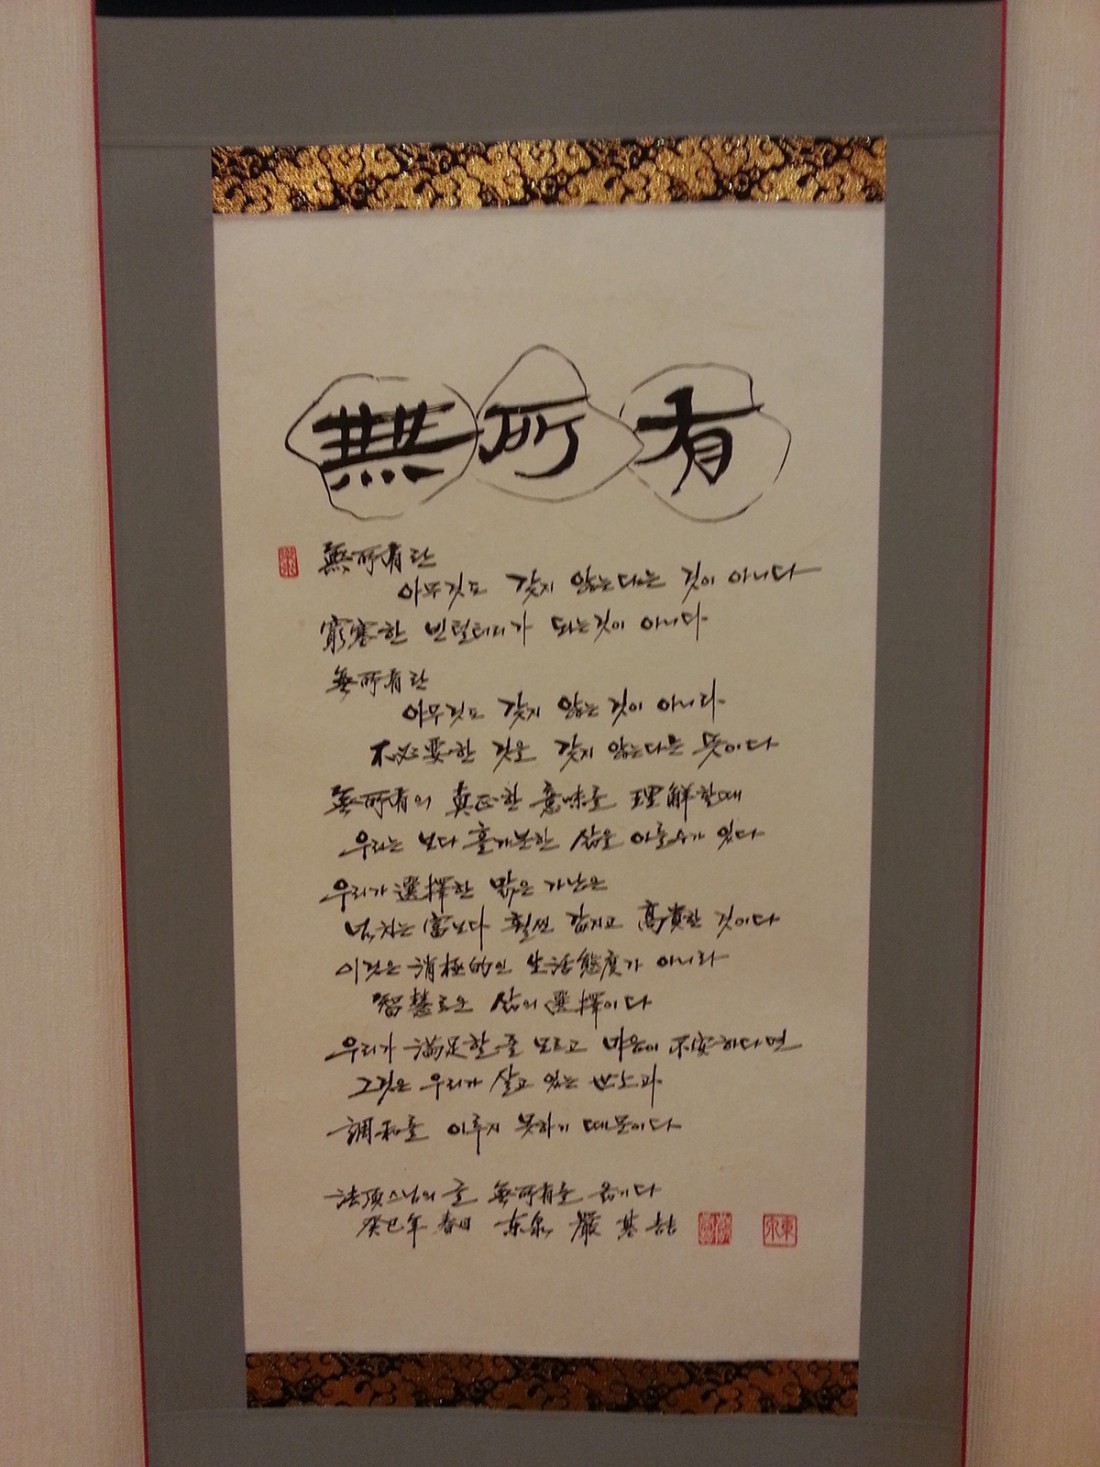 無所有
無所有란
아무것도 갖지 않는다는 것이 아니다
窮塞한 빈털터리가 되는것이 아니다
無所有란
아무것도 갖지 않는 것이 아니라
不必要한 것을 갖지 않는다는 뜻이다
無所有의 真正한 意味를 理解할때
우리는 보다 홀가분한 삶을 이룰수가 있다
우리가 選擇한 맑은 가난은
넘치는 富보다 훨씬 값지고 高貴한 것이다
이것은 消極的인 生活態度가 아니라
智慧로운 삶의 選擇이다
우리가 滿足할 줄 모르고 마음이 不安하다면
그것은 우리가 살고 있는 世上과
調和를 이루지 못하기 때문이다
法頂스님의 글 無所有를 옮기다
癸巳年 春日 东泉 嚴基喆